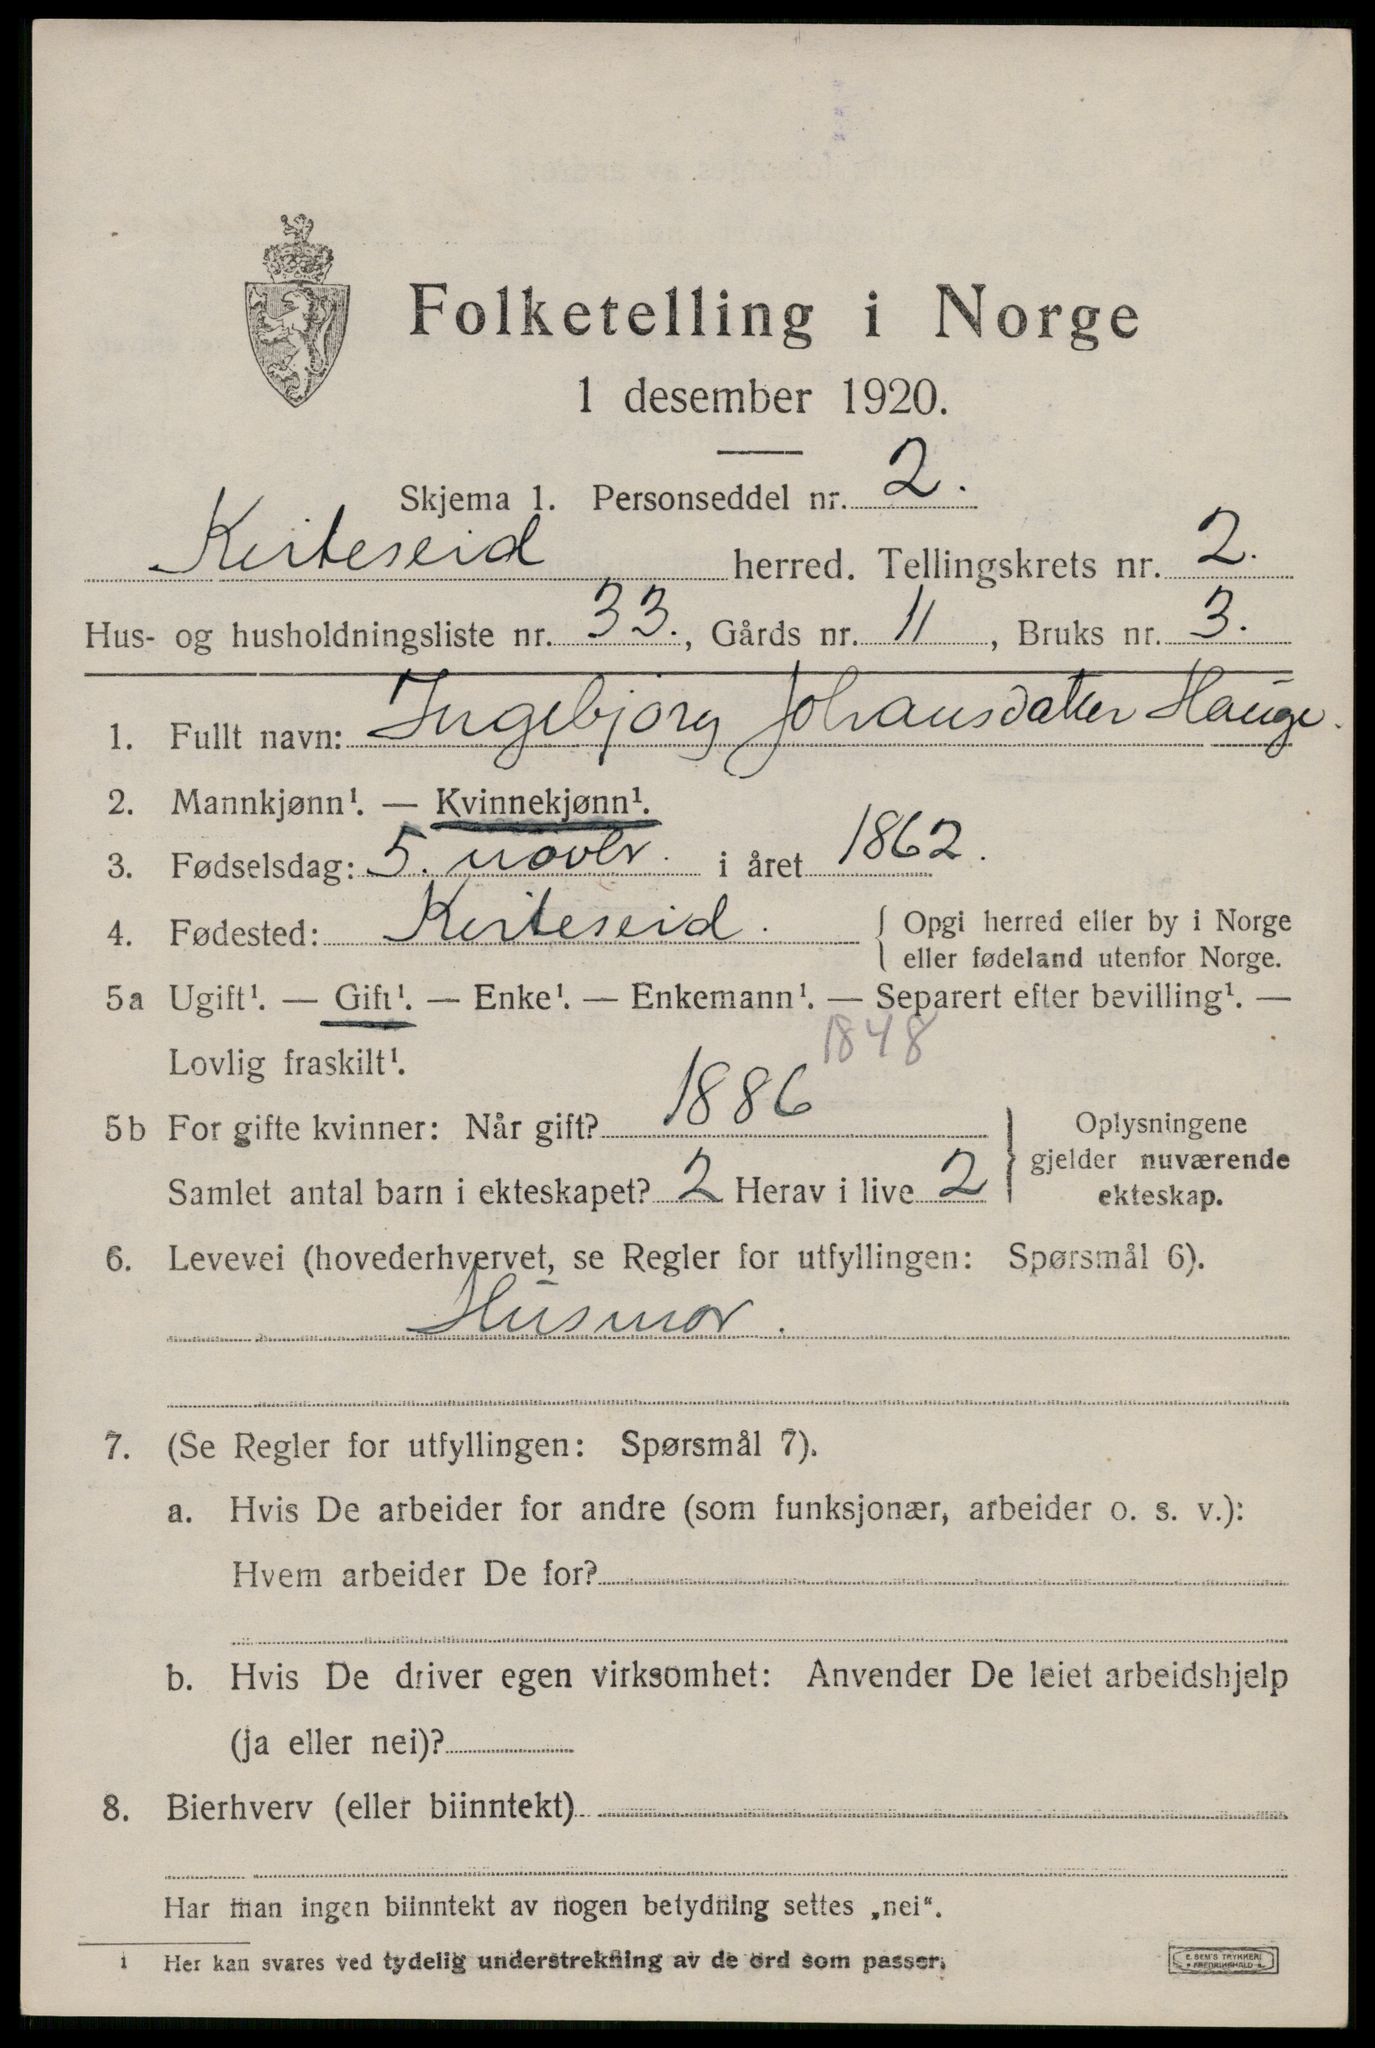 Folketelling i Norge
1 desember 1920.
Skjema 1. Personseddel nr. 2.
Kviteseid herred. Tellingskrets nr. 2.
Hus- og husholdningsliste nr. 33., Gårds nr. 11, Bruks nr. 3.
1. Fullt navn: Ingebjörg Johansdatter Hauge.
2. Mannkjønn¹. — Kvinnekjønn¹.
3. Fødselsdag: 5. novbr. i året 1862.
4. Fødested: Kviteseid. { Opgi herred eller by i Norge
eller fødeland utenfor Norge.
5a Ugift¹. — Gift¹. — Enke¹. — Enkemann¹. — Separert efter bevilling¹. —
Lovlig fraskilt¹. 1848
5b For gifte kvinner: Når gift? 1886 } Oplysningene
gjelder nuværende
Samlet antal barn i ekteskapet? 2 Herav i live 2 ekteskap.
6. Levevei (hovederhvervet, se Regler for utfyllingen: Spørsmål 6).
Husmor.
7. (Se Regler for utfyllingen: Spørsmål 7).
a. Hvis De arbeider for andre (som funksjonær, arbeider o. s. v.):
Hvem arbeider De for?
b. Hvis De driver egen virksomhet: Anvender De leiet arbeidshjelp
(ja eller nei)?
8. Bierhverv (eller biinntekt)
Har man ingen biinntekt av nogen betydning settes „nei“.
1 Her kan svares ved tydelig understrekning av de ord som passer.
E. SEM'S TRYKKERI
FREDRIKSHALD